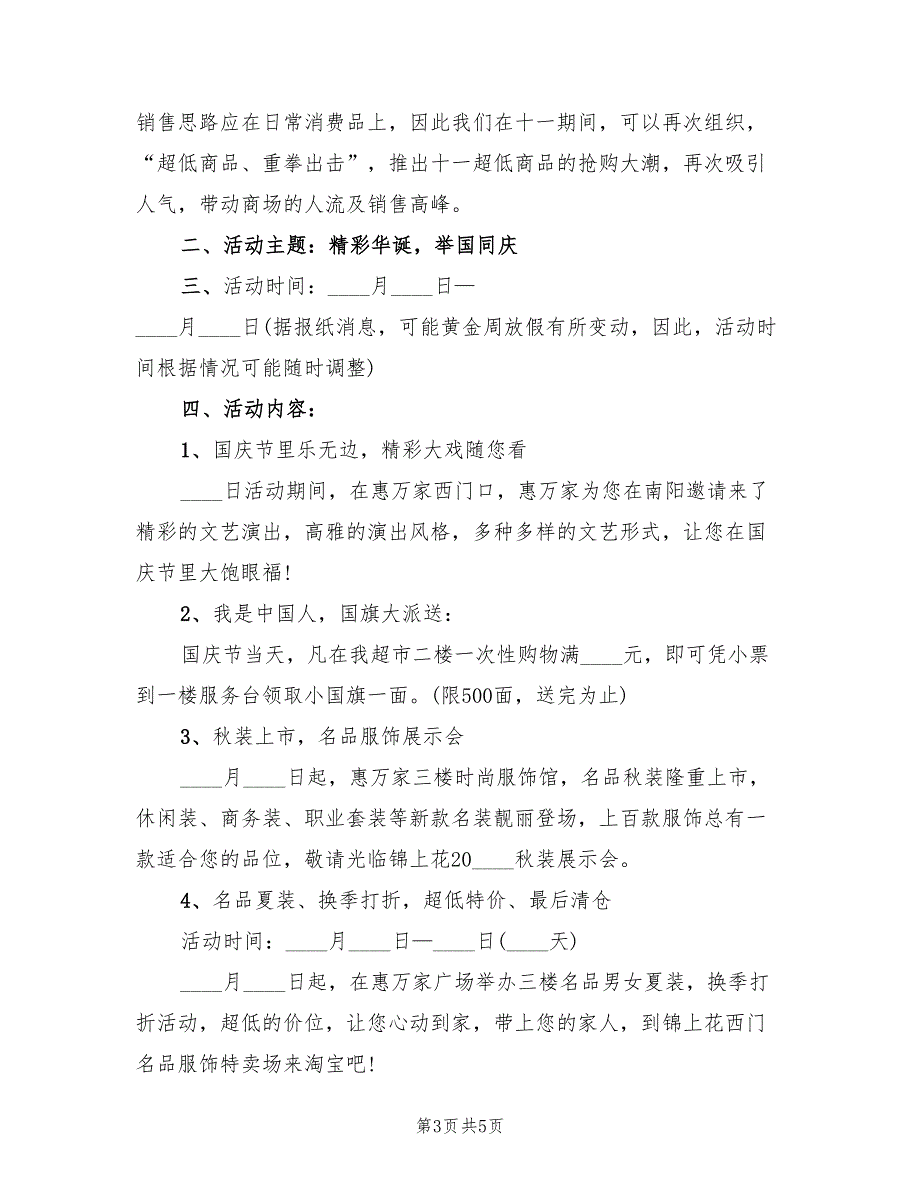 销售思路应在日常消费品上，因此我们在十一期间，可以再次组织，
“超低商品、重拳出击”，推出十一超低商品的抢购大潮，再次吸引
人气，带动商场的人流及销售高峰。
二、活动主题：精彩华诞，举国同庆
三、活动时间：____月____日—
____月____日(据报纸消息，可能黄金周放假有所变动，因此，活动时
间根据情况可能随时调整)
四、活动内容：
1、国庆节里乐无边，精彩大戏随您看
____日活动期间，在惠万家西门口，惠万家为您在南阳邀请来了
精彩的文艺演出，高雅的演出风格，多种多样的文艺形式，让您在国
庆节里大饱眼福!
2、我是中国人，国旗大派送：
国庆节当天，凡在我超市二楼一次性购物满____元，即可凭小票
到一楼服务台领取小国旗一面。(限500面，送完为止)
3、秋装上市，名品服饰展示会
____月____日起，惠万家三楼时尚服饰馆，名品秋装隆重上市，
休闲装、商务装、职业套装等新款名装靓丽登场，上百款服饰总有一
款适合您的品位，敬请光临锦上花20____秋装展示会。
4、名品夏装、换季打折，超低特价、最后清仓
活动时间：____月____日—____日(____天)
____月____日起，在惠万家广场举办三楼名品男女夏装，换季打
折活动，超低的价位，让您心动到家，带上您的家人，到锦上花西门
名品服饰特卖场来淘宝吧!
第3页共5页